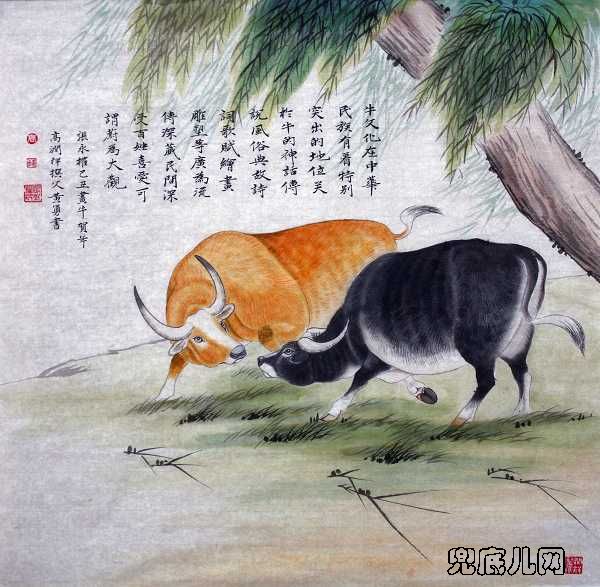 牛文化在中華
民族有着特别
突出的地位关
於牛的神話傳
説風俗典故詩
詞歌賦繪畫
雕塑等廣為流
傳深藏民間深
受百姓喜愛可
謂蔚為大觀
張永權己丑畫牛賀年
高潤祥撰文黄勇書
兜底儿网